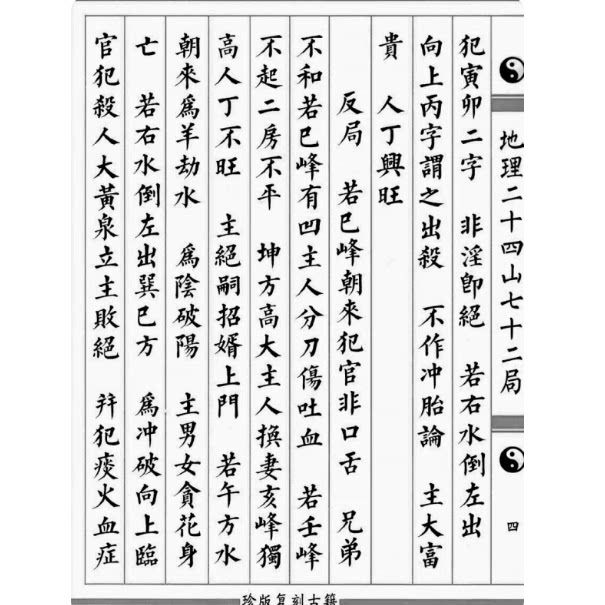 地理二十四山七十二局
四
犯寅卯二字　非淫卽絕　若右水倒左出
向上丙字謂之出殺　不作冲胎論　主大富
貴　人丁興旺
反局　若巳峰朝來犯官非口舌　兄弟
不和若巳峰有凹主人分刀傷吐血　若壬峰
不起二房不平　坤方高大主人換妻亥峰獨
高人丁不旺　主絕嗣招婿上門　若午方水
朝來爲羊劫水　爲陰破陽　主男女貪花身
亡　若右水倒左出巽巳方　爲冲破向上臨
官犯殺人大黃泉立主敗絕　幷犯痰火血症
珍版复刻古籍